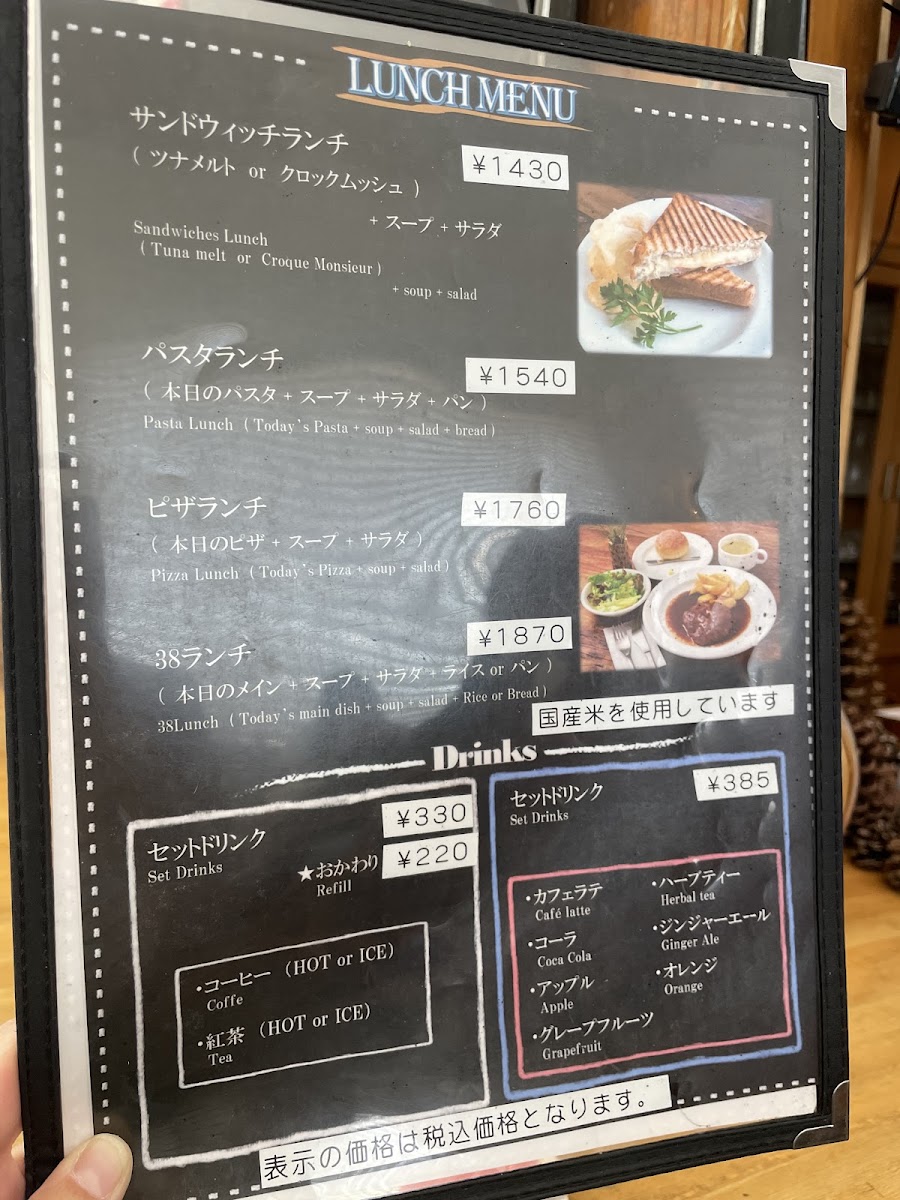 LUNCH MENU
サンドウィッチランチ
( ツナメルト or クロックムッシュ )
¥1430
+ スープ + サラダ
Sandwiches Lunch
( Tuna melt or Croque Monsieur )
+ soup + salad
パスタランチ
¥1540
( 本日のパスタ + スープ + サラダ + パン )
Pasta Lunch ( Today's Pasta + soup + salad + bread )
ピザランチ
¥1760
( 本日のピザ + スープ + サラダ )
Pizza Lunch ( Today's Pizza + soup + salad )
38ランチ
¥1870
( 本日のメイン + スープ + サラダ + ライス or パン )
38Lunch ( Today's main dish + soup + salad + Rice or Bread )
国産米を使用しています
Drinks
セットドリンク
¥330
Set Drinks
★おかわり
¥220
Refill
・コーヒー (HOT or ICE)
Coffe
・紅茶 (HOT or ICE)
Tea
セットドリンク
¥385
Set Drinks
・カフェラテ
Café latte
・コーラ
Coca Cola
・アップル
Apple
・グレープフルーツ
Grapefruit
・ハーブティー
Herbal tea
・ジンジャーエール
Ginger Ale
・オレンジ
Orange
表示の価格は税込価格となります。